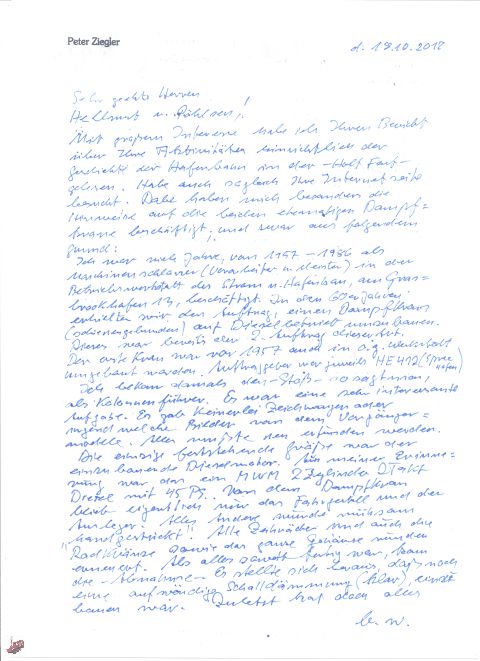 Peter Ziegler
d. 17.10.2012
Sehr geehrte Herren
Hellmut u. !
Mit großem Interesse habe ich Ihren Bericht
über Ihre Aktivitäten hinsichtlich der
Geschichte der Hafenbahn in der
gelesen. Habe auch sogleich Ihre Internetseite
besucht. Dabei haben mich besonders die
Hinweise auf die beiden ehemaligen Dampf=
krane beschäftigt, und zwar aus folgendem
Grund:
Ich war viele Jahre, von 1957 - 1986 als
Maschinenschlosser (Vorarbeiter u. Meister) in der
Betriebswerkstatt der Strom u. Hafenbau, am Gras=
brookhafen 13, beschäftigt. In den 60er Jahren
erhielten wir den Auftrag, einen Dampfkran
(schienengebunden) auf Dieselbetrieb umzubauen.
Dieses war bereits der 2. Auftrag dieser Art.
Der erste Kran war vor 1957 auch in o.g. Werkstatt
umgebaut worden. Auftraggeber war jeweils HE 412
Ich bekam damals den - so sagt man,
als Kolonnenführer. Es war eine sehr interessante
Aufgabe. Es gab keinerlei Zeichnungen oder
irgendwelche Bilder von dem Vorgänger=
modell. Alles mußte neu erfunden werden.
Die einzige feststehende Größe war der
einzubauende Dieselmotor. Aus meiner Erinne=
rung war das ein MWM 2 Zylinder 2 Takt
Diesel mit 45 PS. Von dem Dampfkran
blieb eigentlich nur das Fahrgestell und der
Ausleger. Alles andere wurde mühsam
"handgestrickt". Alle Zahnräder und auch die
Radkränze sowie das ganze Gehäuse wurden
erneuert. Als alles soweit fertig war, kam
die - Abnahme - Es stellte sich heraus, daß noch
eine aufwändige Schalldämmung (klar),
bauen war. Zuletzt hat doch alles
b. w.